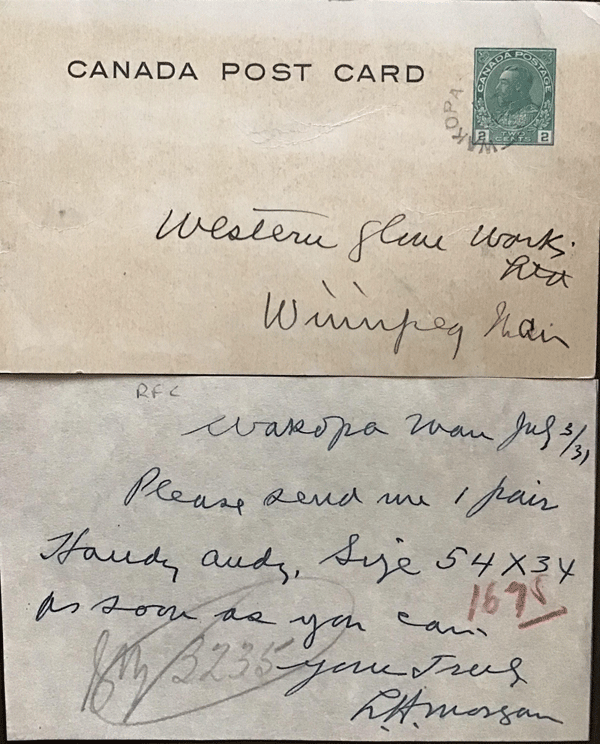 CANADA POST CARD
CANADA POSTAGE
2 TWO CENTS 2
WAKOPA
Western Glove Works
Ltd
Winnipeg Man
RFC
Wakopa Man July 3/31
Please send me 1 pair
Handy andy, Size 54 X 34
as soon as you can
1695
3235
your Truly
L.H. Morgan